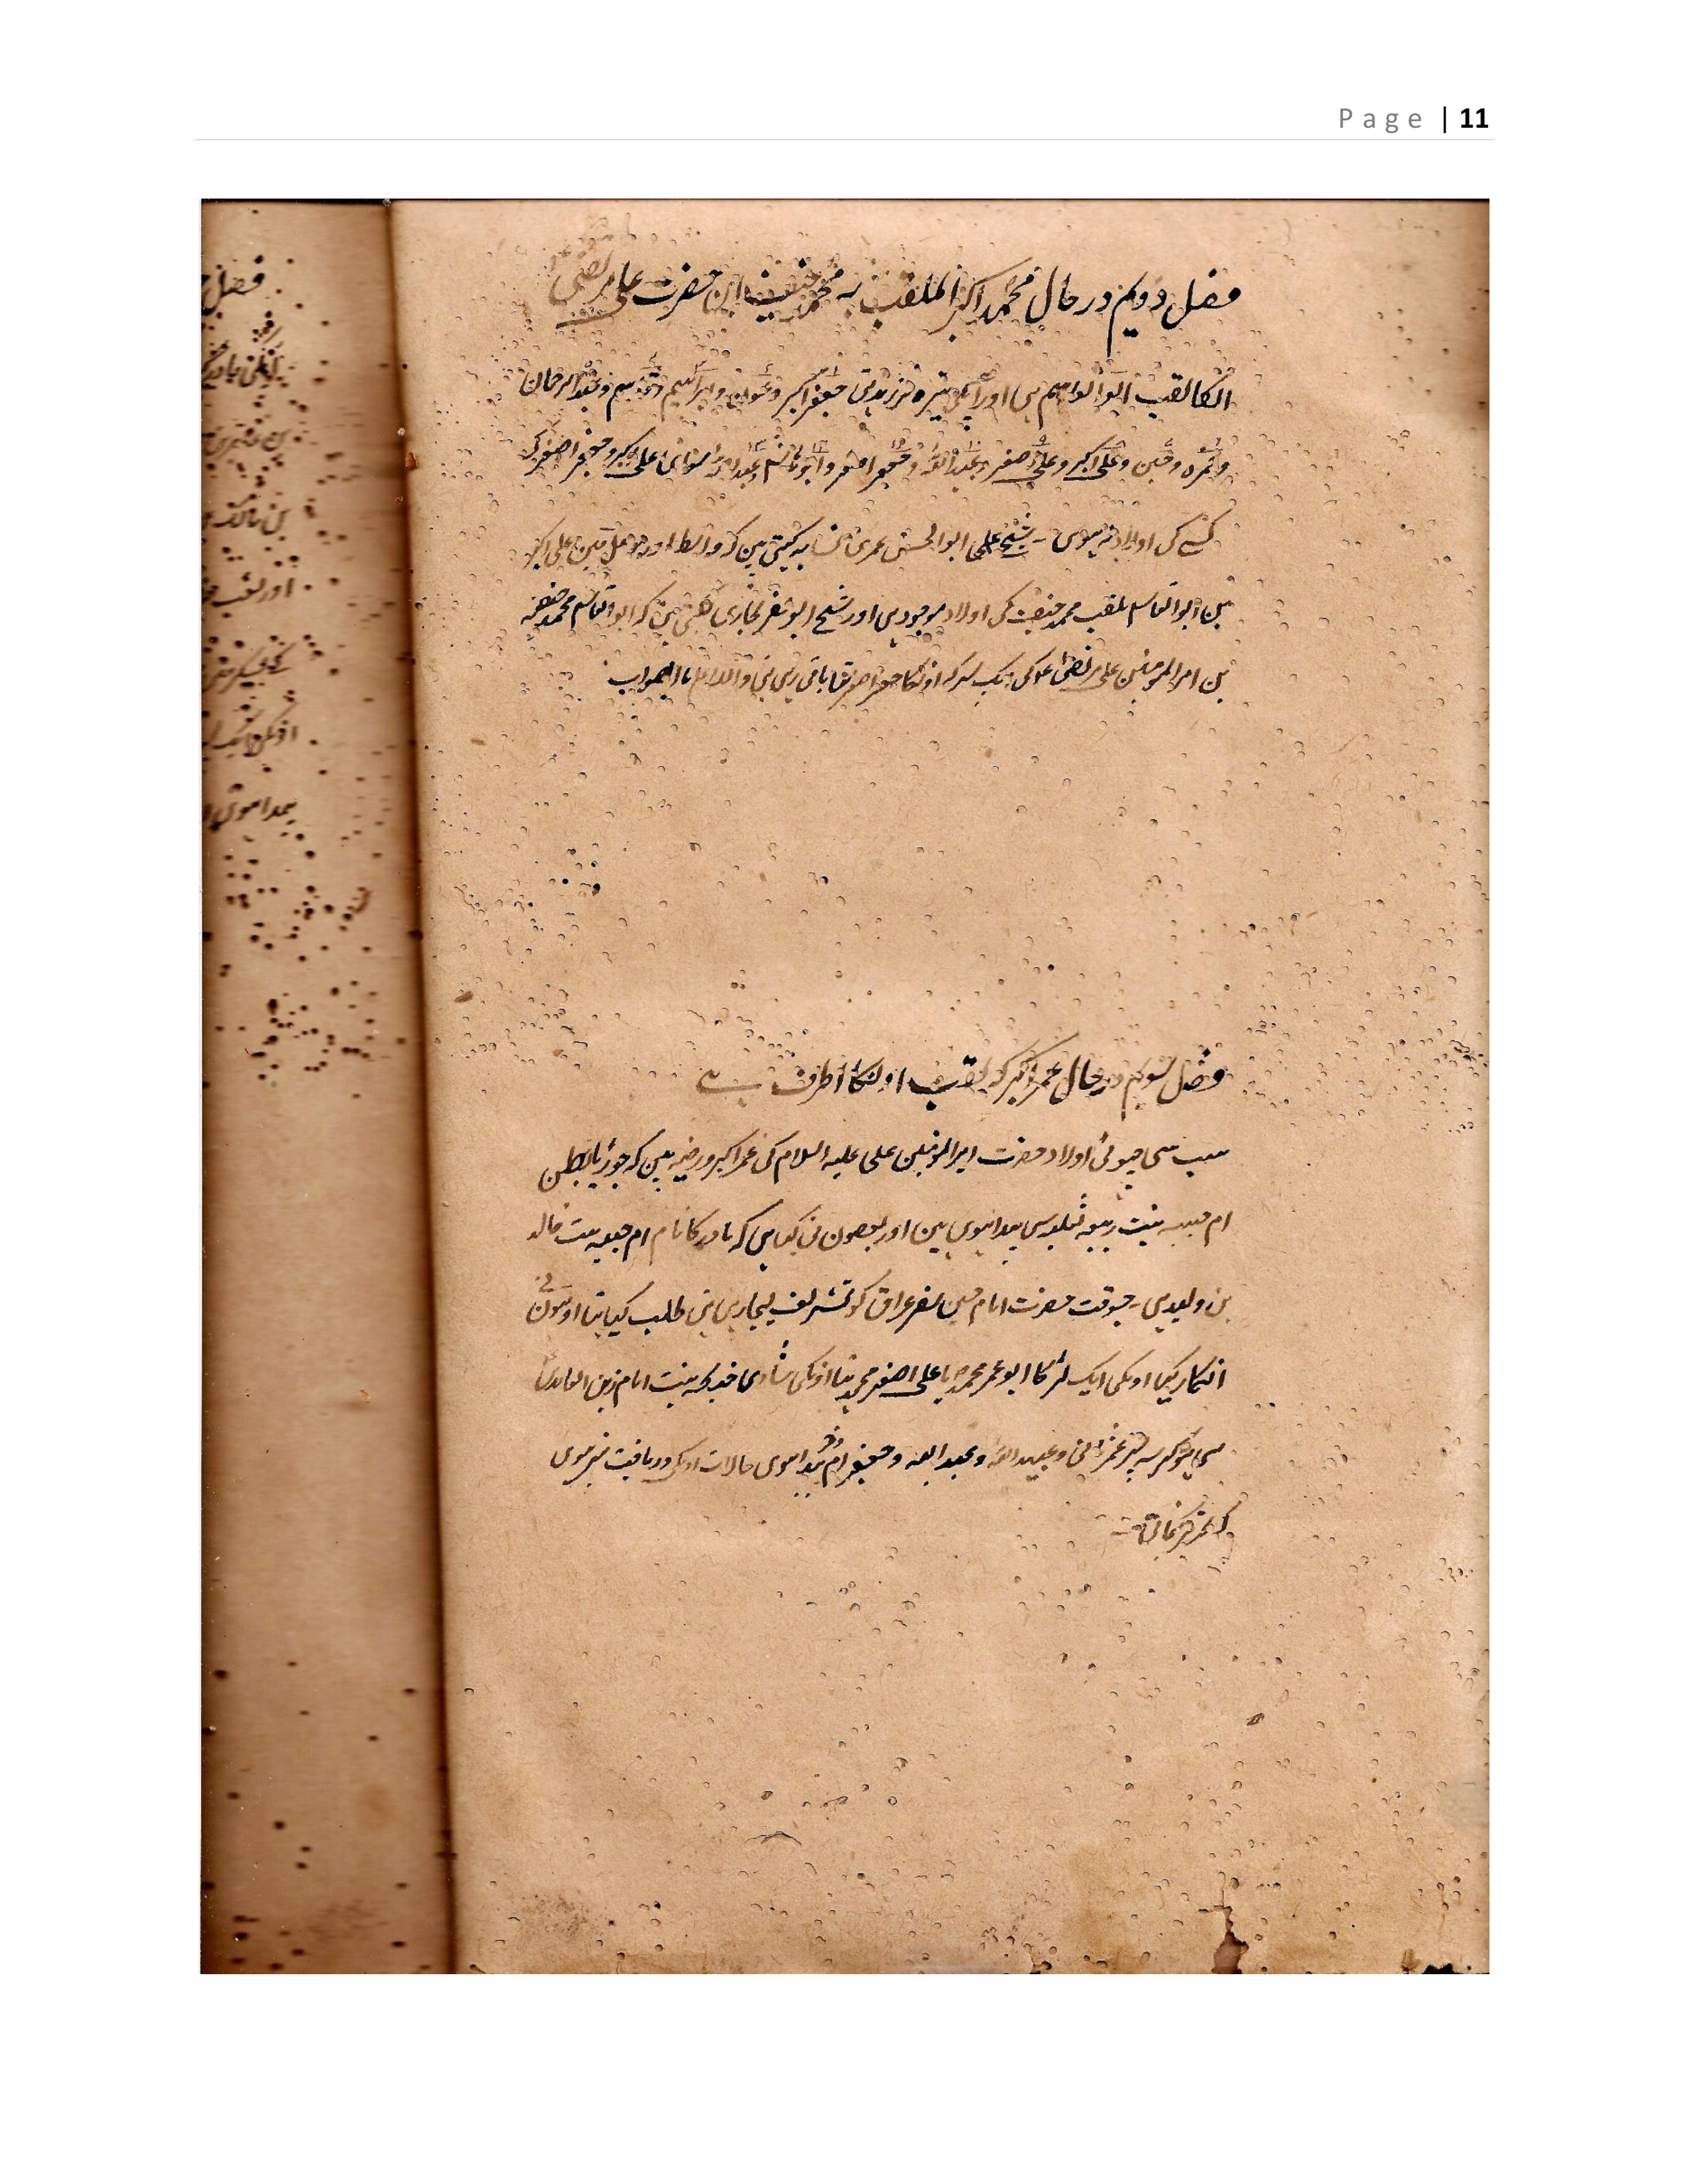 Page | 11
فصل دویم در حال محمد اکبر الملقب به محمد حنیفہ ابن حضرت علی مرتضی
انکا لقب ابو القاسم ہی اور آپکی تیرہ فرزند تہی جعفر اکبر و عون و ابراہیم و قاسم و عبد الرحمان
و حمزہ و علی اکبر و علی اصغر و عبد اللہ و جعفر اصغر و ابو ہاشم عبد اللہ سوائی علی اکبر و جعفر اصغر کی
کسے کی اولاد نہ ہوی - شیخ علی ابو الحسن عمری نسابہ کہتی ہین کہ واسط اور موصل مین علی اکبر
بن ابو القاسم ملقب محمد حنیفہ کی اولاد موجود ہی اور شیخ ابو نصر بخاری کہتی ہین کہ ابو القاسم محمد حنفیہ
بن امیر المومنین علی مرتضی کی ایک پسر کہ اونکا جعفر اصغر تہا باقی رہی تہی واللہ اعلم بالصواب
فصل سویم در حال عمر اکبر کہ لقب اونکا اطرف ہے
سب سی چہوٹی اولاد حضرت امیر المومنین علی علیہ السلام کی عمر اکبر و رقیہ ہین کہ جوڑیا بطن
ام حبیبہ بنت ربیعہ ثعلبہ سی پیدا ہوی ہین اور بعضون نی کہا ہی کہ مادر کا نام ام حبیبہ بنت خالد
بن ولید ہی - جسوقت حضرت امام حسین سفر عراق کو تشریف لیجا رہی تہی طلب کیا تہا اونہون نے
انکار کیا اونکی ایک لڑکا ابو عمر محمد یا علی اصغر محمد تہا اونکی شادی خدیجہ بنت امام زین العابدین
سی ہوکر سہ پسر عمر و عبید اللہ و عبد اللہ و جعفر پیدا ہوی حالات اونکی دریافت نہ ہوی